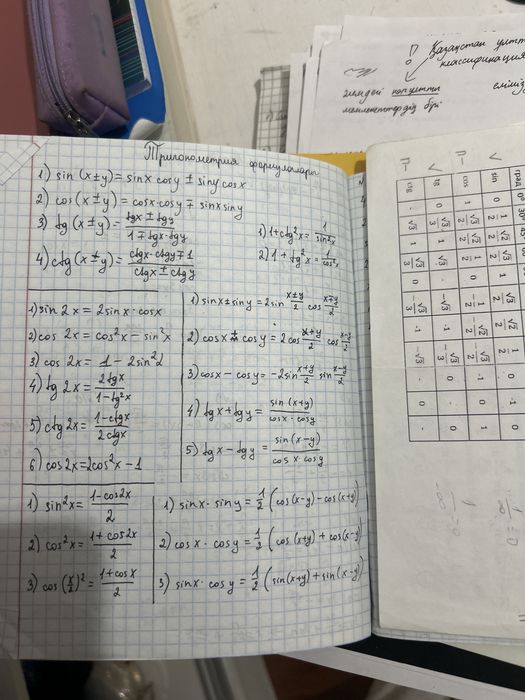 Тригонометрия формулалары
1) sin (x ± y) = sinx cosy ± siny cosx
2) cos (x ± y) = cosx·cosy ∓ sinx siny
3) tg (x ± y) = (tgx ± tgy)/(1 ∓ tgx·tgy)
4) ctg (x ± y) = (ctgx·ctgy ∓ 1)/(ctgx ± ctgy)
1) 1 + ctg²x = 1/sin²x
2) 1 + tg²x = 1/cos²x
1) sin 2x = 2sinx·cosx
2) cos 2x = cos²x − sin²x
3) cos 2x = 1 − 2sin²α
4) tg 2x = 2tgx/(1 − tg²x)
5) ctg 2x = (1 − ctgx)/(2ctgx)
6) cos2x = 2cos²x − 1
1) sinx ± siny = 2sin (x±y)/2 cos (x∓y)/2
2) cosx + cosy = 2cos (x+y)/2 cos (x−y)/2
3) cosx − cosy = −2sin (x+y)/2 sin (x−y)/2
4) tgx + tgy = sin(x+y)/(cosx·cosy)
5) tgx − tgy = sin(x−y)/(cosx·cosy)
1) sin²x = (1 − cos2x)/2
2) cos²x = (1 + cos2x)/2
3) cos(x/2)² = (1 + cosx)/2
1) sinx · siny = 1/2 (cos(x−y) − cos(x+y)
2) cosx · cosy = 1/2 (cos(x+y) + cos(x−y)
3) sinx · cosy = 1/2 (sin(x+y) + sin(x−y)
Қазақстан ұлтт
классификация
әлемдегі көпұлтты
мемлекеттердің бірі
град 0° 30°
sin 0 1/2 √2/2 √3/2 1
cos 1 √3/2 √2/2 1/2 0
tg 0
ctg - √3 1 √3/3 0